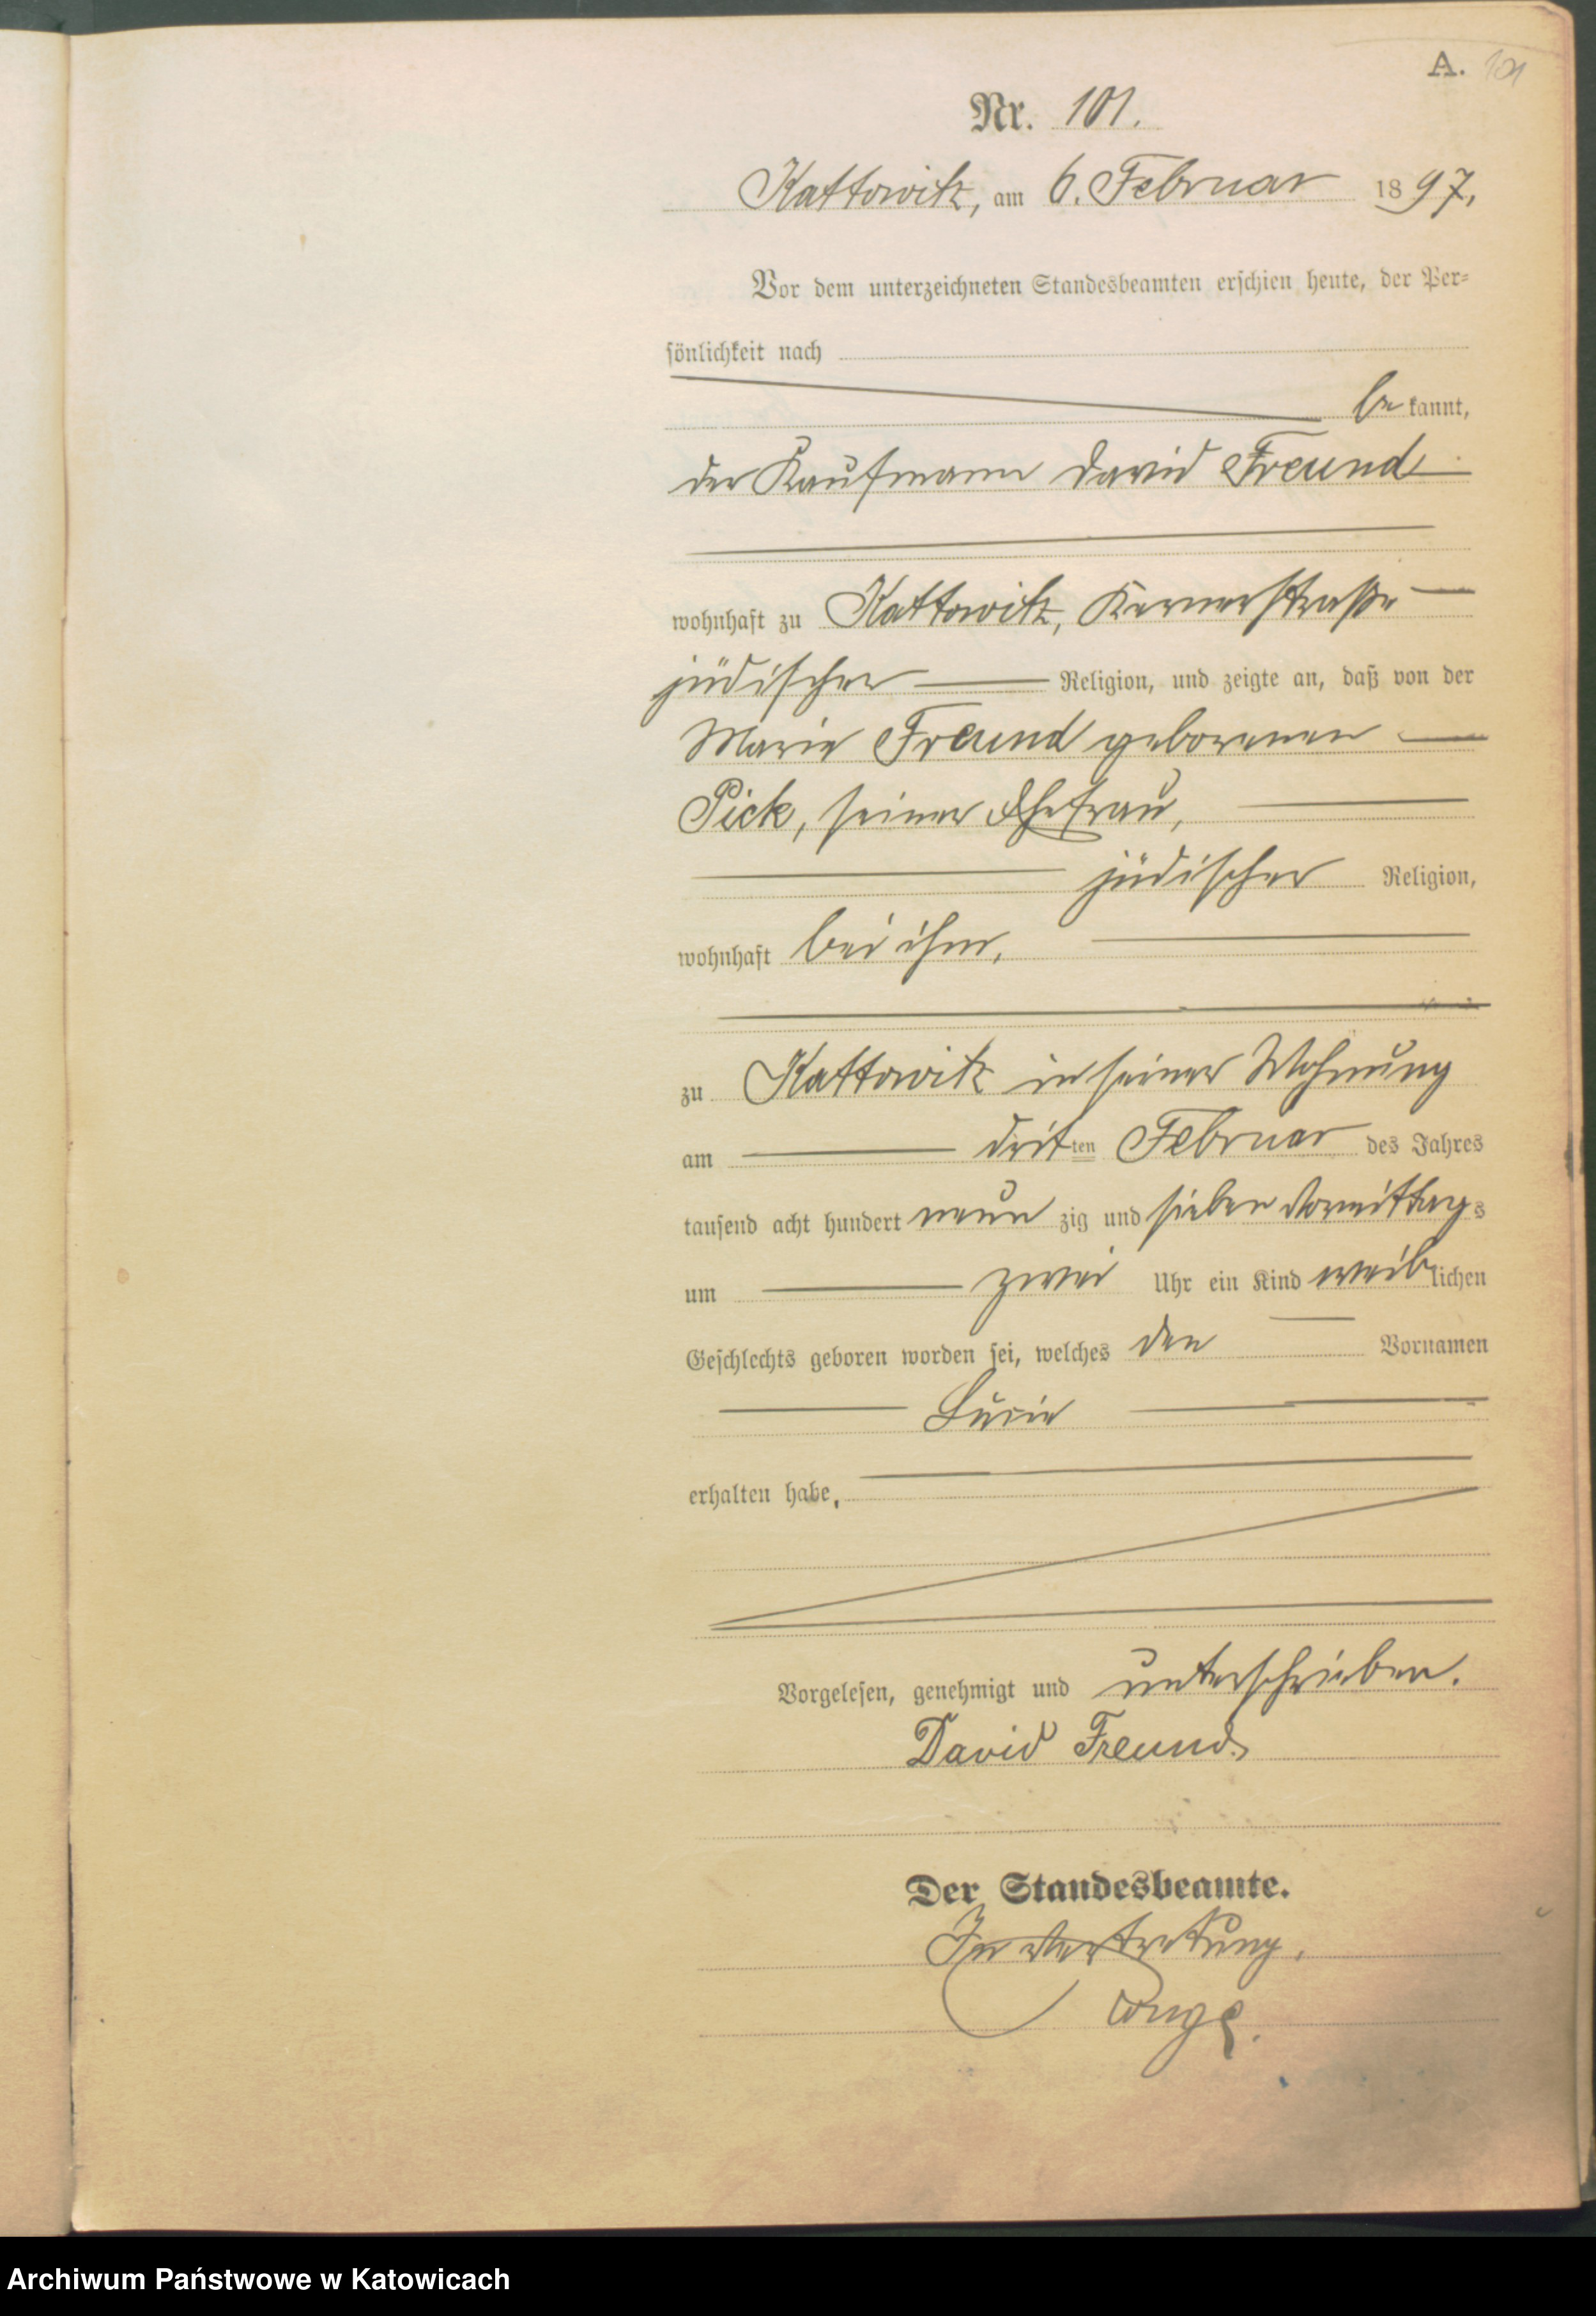 A. 101
Nr. 101.
Kattowitz, am 6. Februar 1897,
Vor dem unterzeichneten Standesbeamten erschien heute, der Per-
sönlichkeit nach
be kannt,
der Kaufmann David Freund
wohnhaft zu Kattowitz, Kernerstraße
jüdischer Religion, und zeigte an, daß von der
Marie Freund geborenen
Pick, seiner Ehefrau,
jüdischer Religion,
wohnhaft bei ihm,
zu Kattowitz in seiner Wohnung
am dritten Februar des Jahres
tausend acht hundert neun zig und sieben Vormittags
um zwei Uhr ein Kind weiblichen
Geschlechts geboren worden sei, welches den Vornamen
Lucie
erhalten habe,
Vorgelesen, genehmigt und unterschrieben.
David Freund
Der Standesbeamte.
In Vertretung.
Archiwum Państwowe w Katowicach